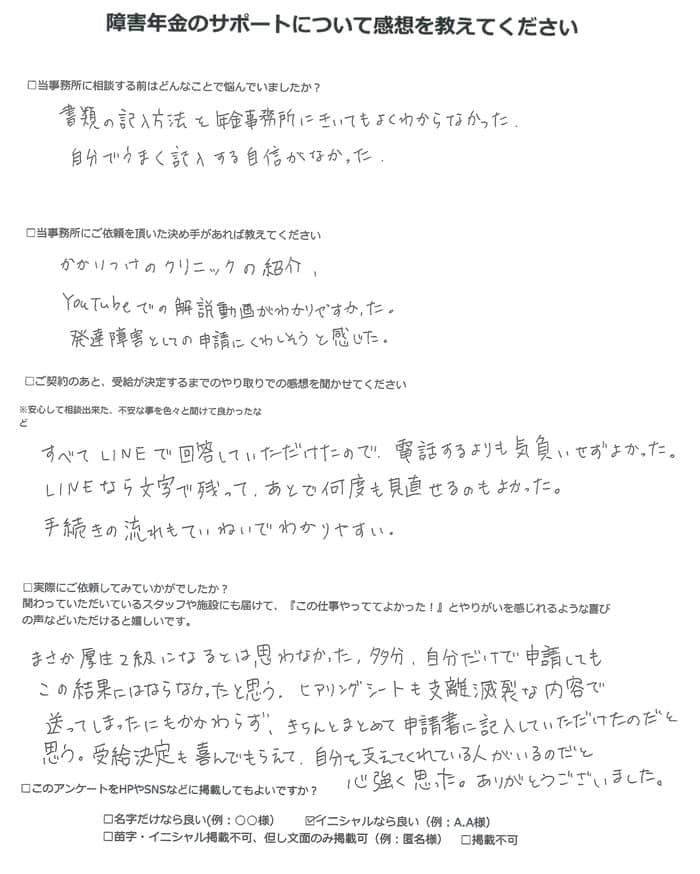 障害年金のサポートについて感想を教えてください
□当事務所に相談する前はどんなことで悩んでいましたか？
書類の記入方法を年金事務所にきいてもよくわからなかった.
自分でうまく記入する自信がなかった.
□当事務所にご依頼を頂いた決め手があれば教えてください
かかりつけのクリニックの紹介,
YouTubeでの解説動画がわかりやすかった。
発達障害としての申請にくわしそうと感じた。
□ご契約のあと、受給が決定するまでのやり取りでの感想を聞かせてください
※安心して相談出来た、不安な事を色々と聞けて良かったな
ど
すべてLINEで回答していただけたので、電話するよりも気負いせずよかった。
LINEなら文字で残って、あとで何度も見直せるのもよかった。
手続きの流れもていねいでわかりやすい。
□実際にご依頼してみていかがでしたか？
関わっていただいているスタッフや施設にも届けて、『この仕事やっててよかった！』とやりがいを感じれるような喜び
の声などいただけると嬉しいです。
まさか厚生2級になるとは思わなかった, 多分, 自分だけで申請しても
この結果にはならなかったと思う. ヒアリングシートも支離滅裂な内容で
送ってしまったにもかかわらず、きちんとまとめて申請書に記入していただけたのだと
思う。受給決定も喜んでもらえて、自分を支えてくれている人がいるのだと
心強く思った。ありがとうございました。
□このアンケートをHPやSNSなどに掲載してもよいですか？
□名字だけなら良い(例：○○様) ☑イニシャルなら良い（例：A.A様）
□苗字・イニシャル掲載不可、但し文面のみ掲載可（例：匿名様） □掲載不可